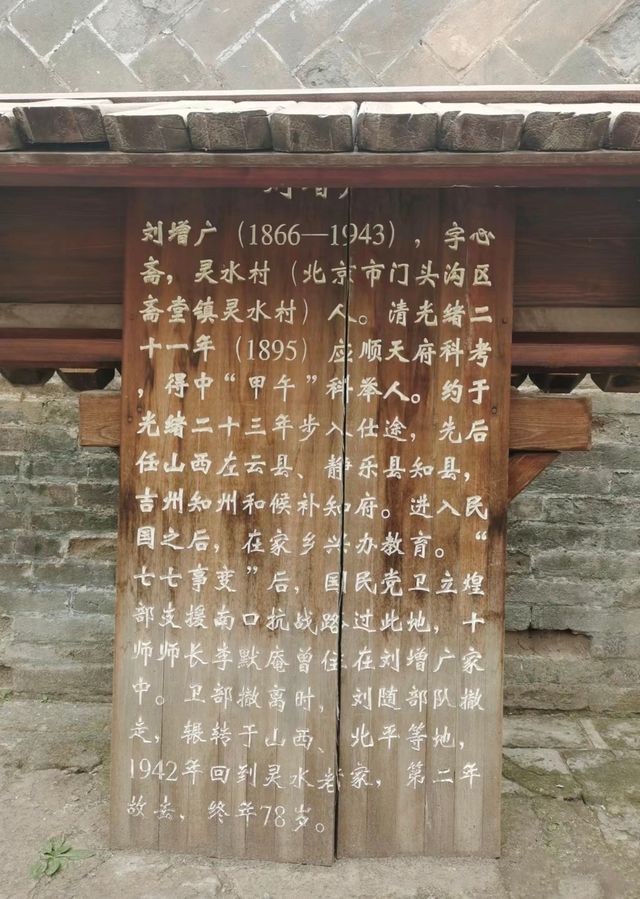 刘增广
刘增广（1866—1943），字心
斋，灵水村（北京市门头沟区
斋堂镇灵水村）人。清光绪二
十一年（1895）应顺天府科考
，得中“甲午”科举人。约于
光绪二十三年步入仕途，先后
任山西左云县、静乐县知县，
吉州知州和候补知府。进入民
国之后，在家乡兴办教育。“
七七事变”后，国民党卫立煌
部支援南口抗战路过此地，十
师师长李默庵曾住在刘增广家
中。卫部撤离时，刘随部队撤
走，辗转于山西、北平等地，
1942年回到灵水老家，第二年
故去，终年78岁。